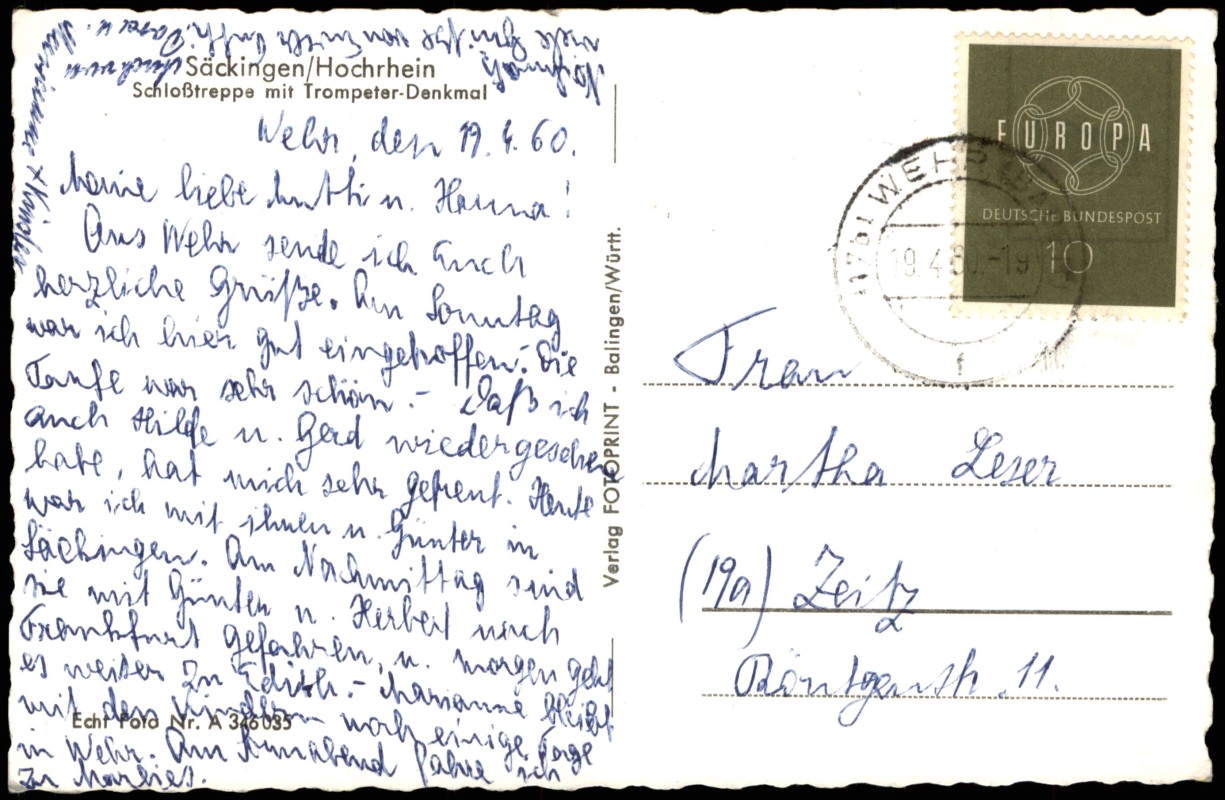 Säckingen/Hochrhein
Schloßtreppe mit Trompeter-Denkmal
Wehr, den 19.4.60.
Meine liebe Mutti u. Hanna!
Aus Wehr sende ich Euch
herzliche Grüße. Am Sonntag
war ich hier gut eingetroffen. Die
Taufe war sehr schön. - Daß ich
auch Hilde u. Gerd wiedergesehen
habe, hat mich sehr gefreut. Heute
war ich mit ihnen u. Günter in
Säckingen. Am Nachmittag sind
sie mit Günter u. Herbert nach
Frankfurt gefahren, u. morgen geht
es weiter zu Edith. - Marianne bleibt
mit den Kindern noch einige Tage
in Wehr. Am Sonnabend fahre ich
zu Marlies.
Nochmals
viele Grüße von Eurer
Auch von
Marianne + Kinder
Echt Foto Nr. A 346035
Verlag FOTOPRINT - Balingen/Württ.
EUROPA
DEUTSCHE BUNDESPOST
10
WEHR
19.4.60.-19
f
Frau
Martha Leser
(19a) Zeitz
Röntgenstr. 11.